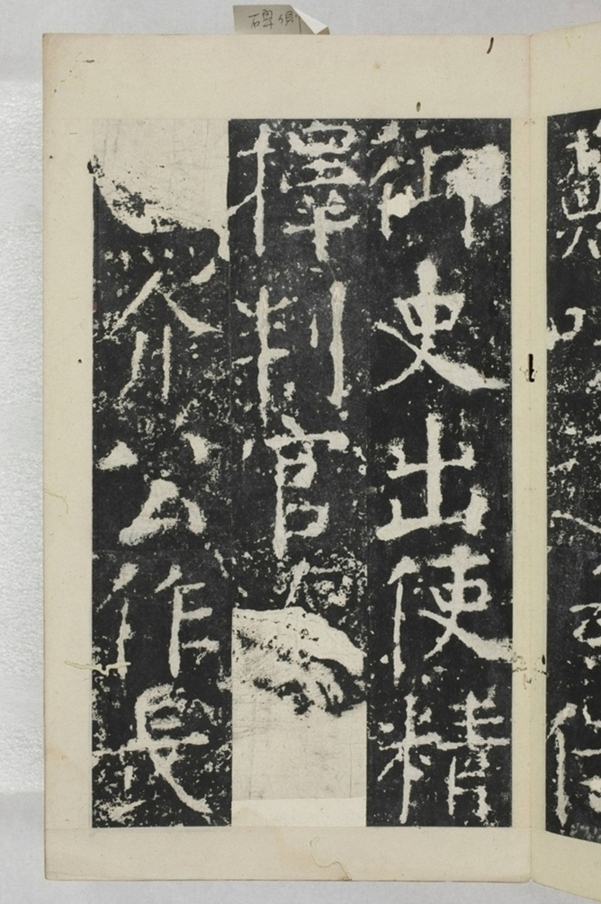 碑側
御史出使精
擇判官
介公作長